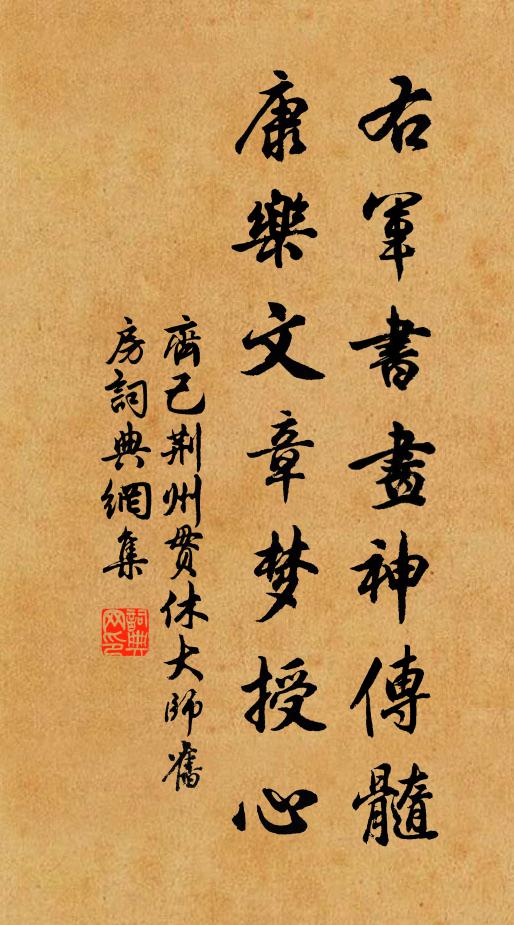 右軍書畫神傳髓
康樂文章梦授心
齊己荆州貫休大師舊
房詞典網集
詞典
网印